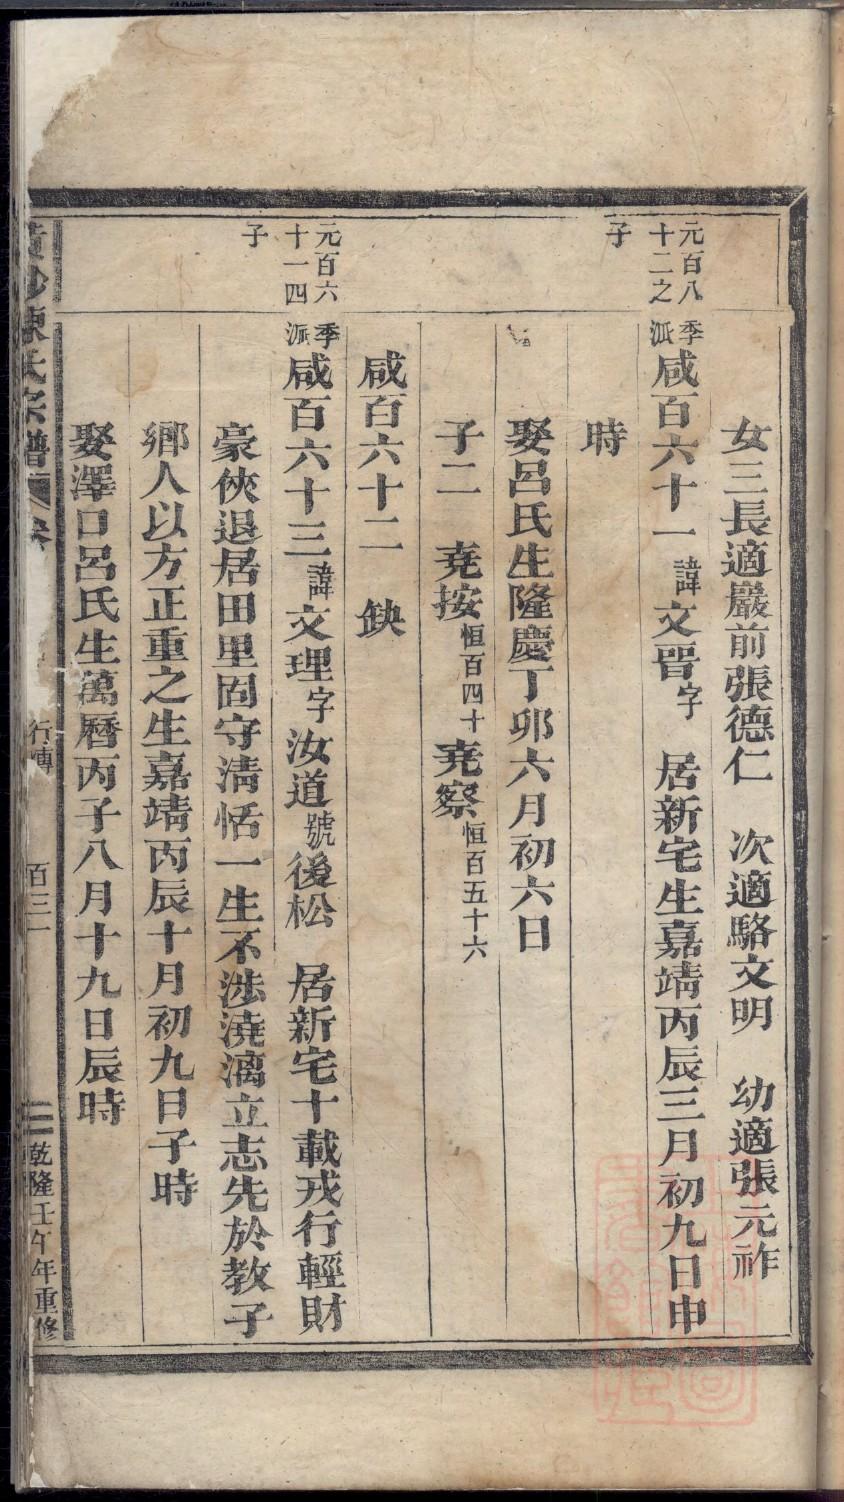 女三長適嚴前張德仁　次適駱文明　幼適張元祚
元百八十二之子
季派咸百六十一諱文晋字　居新宅生嘉靖丙辰三月初九日申
時
娶呂氏生隆慶丁卯六月初六日
子二　堯按恒百四十堯察恒百五十六
咸百六十二　缺
元百六十一四子
季派咸百六十三諱文理字汝道號後松　居新宅十載戎行輕財
豪俠退居田里固守清恬一生不涉澆漓立志先於教子
鄉人以方正重之生嘉靖丙辰十月初九日子時
娶澤口呂氏生萬曆丙子八月十九日辰時
陳氏宗譜　卷　行傳　百三一　乾隆壬午年重修